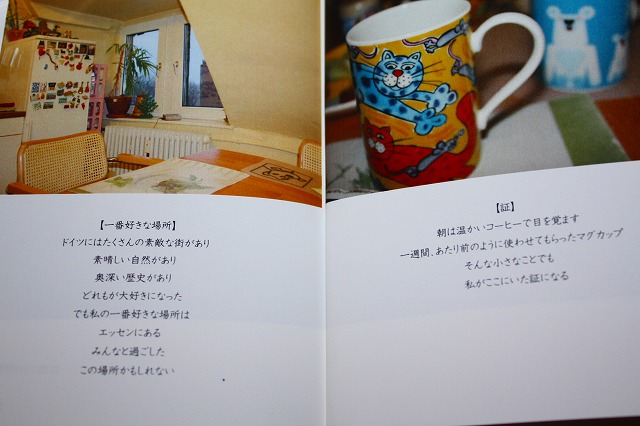 【一番好きな場所】
ドイツにはたくさんの素敵な街があり
素晴しい自然があり
奥深い歴史があり
どれもが大好きになった
でも私の一番好きな場所は
エッセンにある
みんなと過ごした
この場所かもしれない
【証】
朝は温かいコーヒーで目を覚ます
一週間、あたり前のように使わせてもらったマグカップ
そんな小さなことでも
私がここにいた証になる